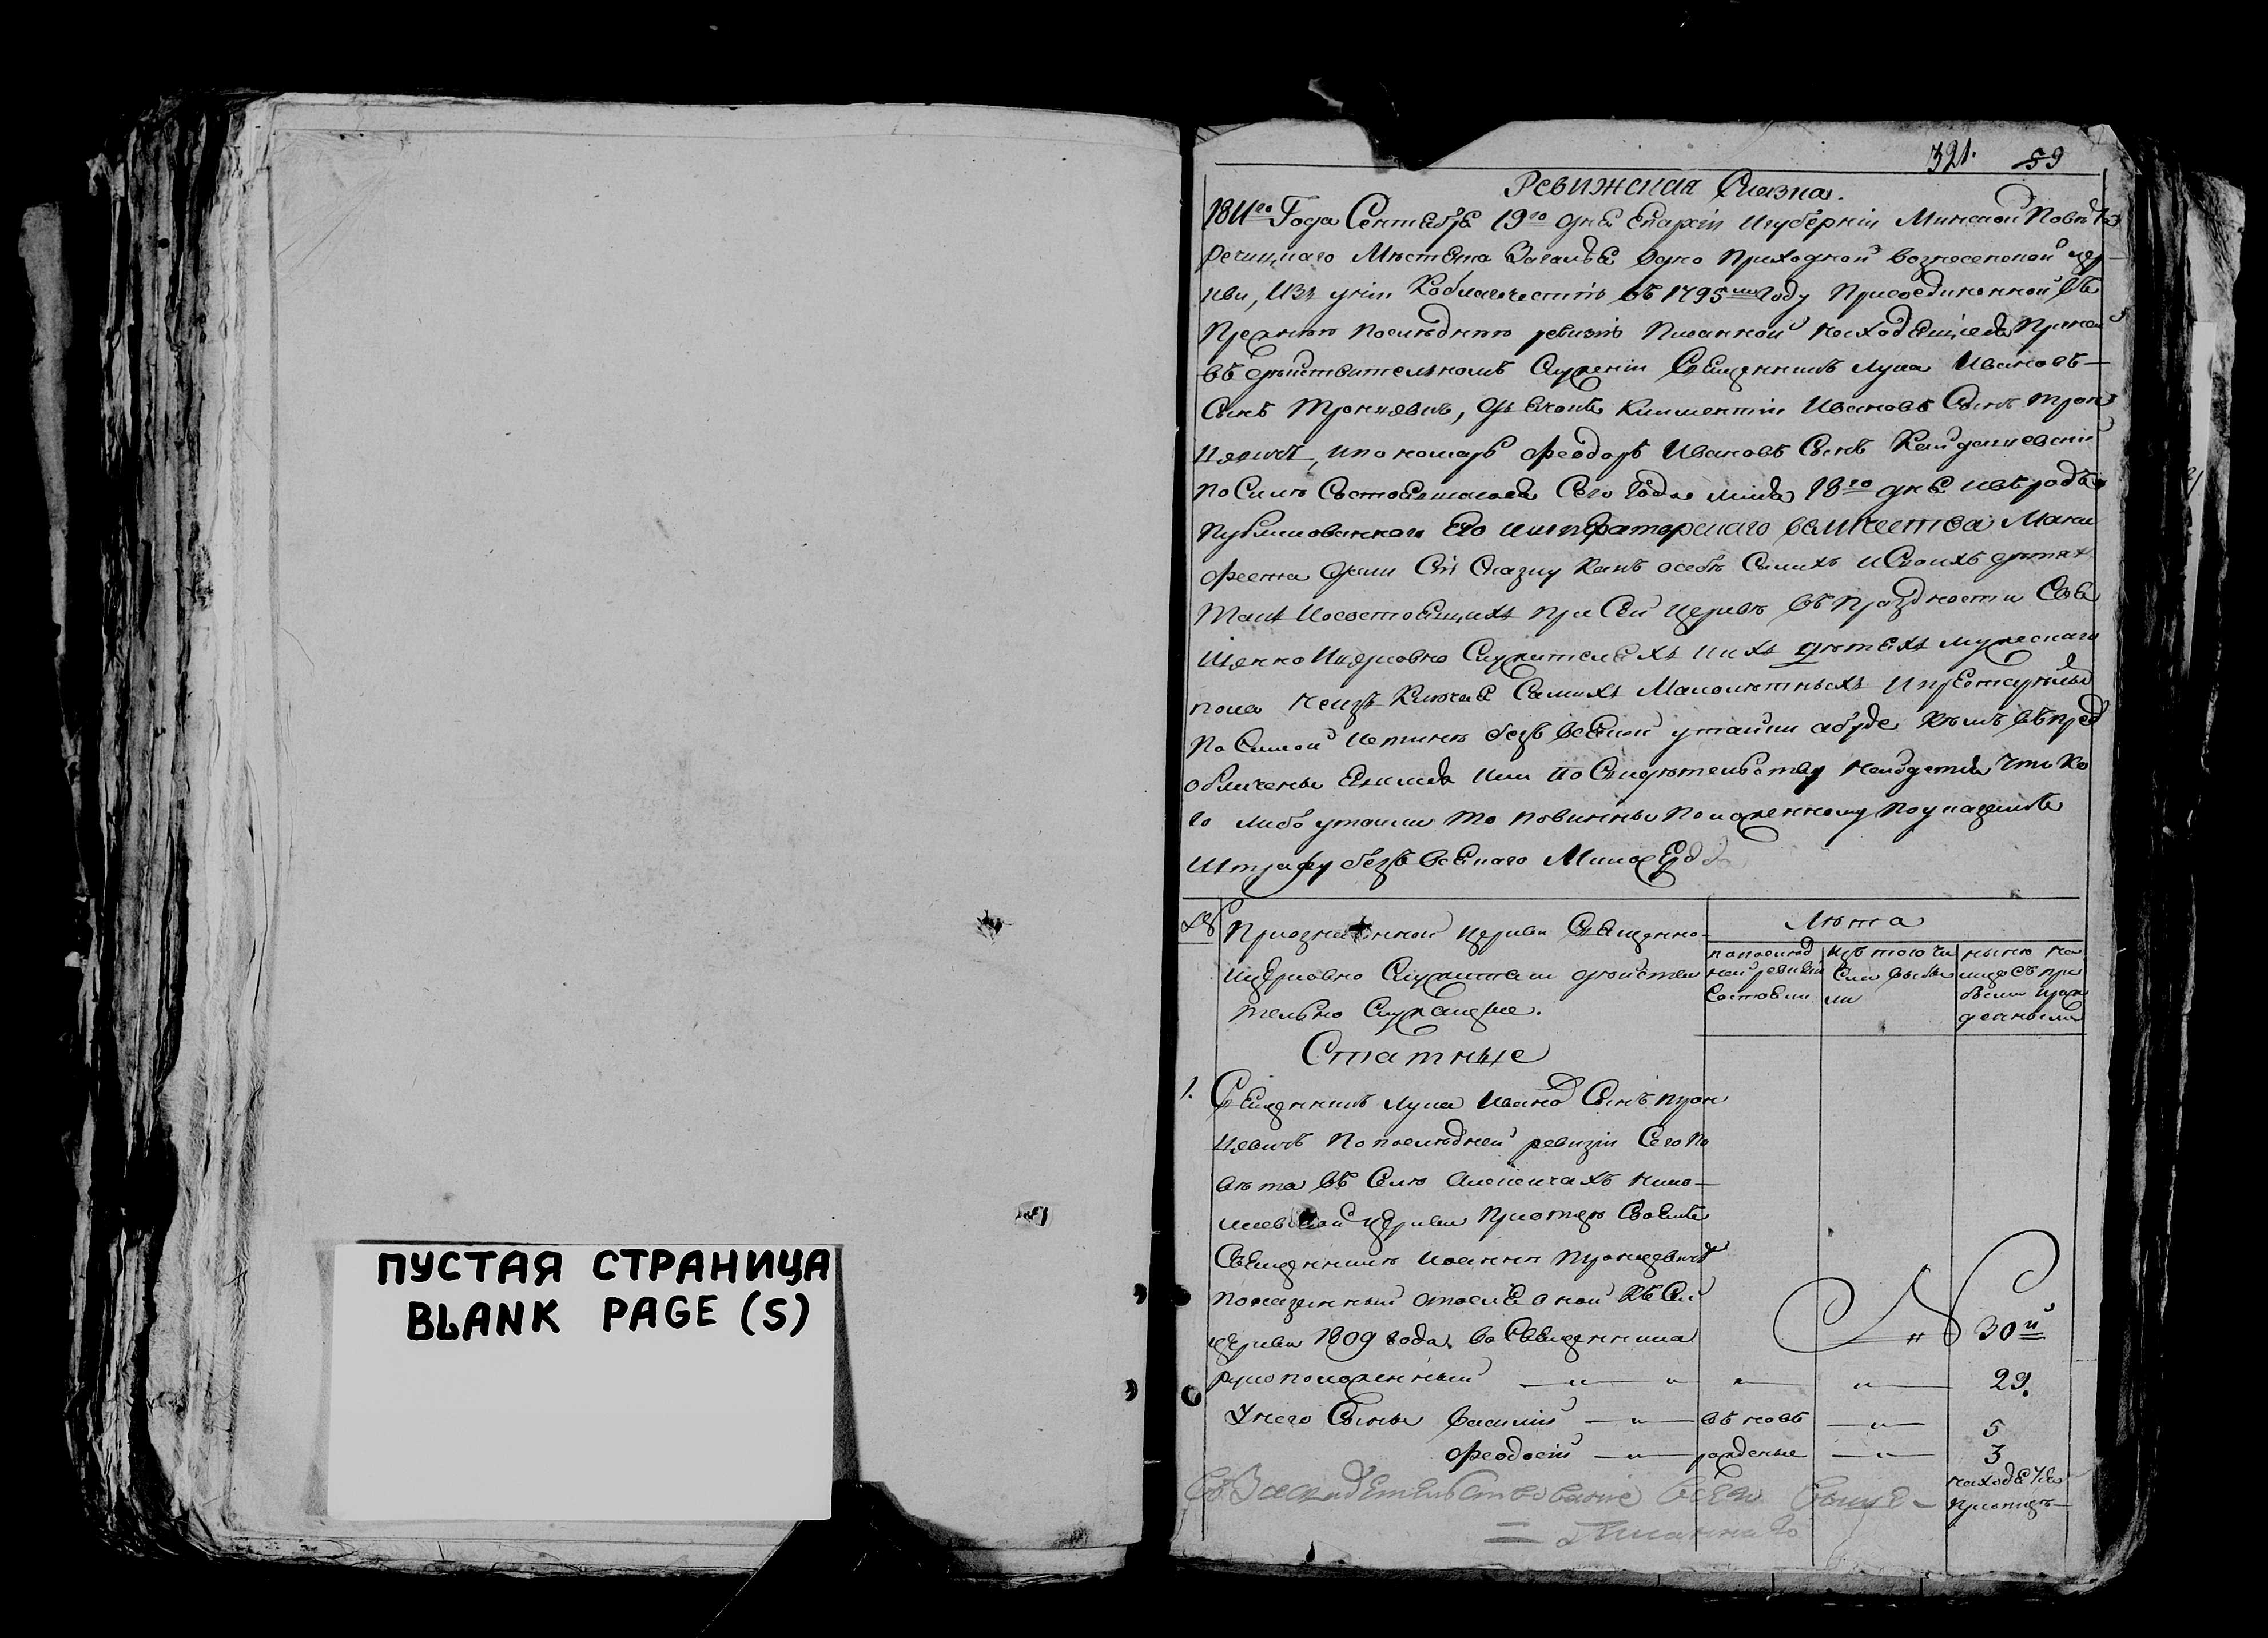 ПУСТАЯ СТРАНИЦА
BLANK PAGE (S)
321. 59
Ревижская Сказка.
1811го Года Сентября 19го дня Епархіи и губерніи Минской Повѣта
Речицкаго Мѣстечка Загалья Одно Приходной Вознесенской цер-
кви, Изъ уніи Ко благочестію въ 1795мъ Году Присоединенной, Въ
Прежнюю Последнюю ревизію Писанной находящіеся При ней
въ дѣйствительномъ Служеніи Священникъ Лука Ивановъ
Сынъ Пронцевичъ, Дьячокъ Климентій Ивановъ Сынъ Прон
цевичъ, и пономарь Феодоръ Ивановъ Сынъ
По Силѣ Состоявшагося Сего Года маія 18го дня и въ родъ
Публикованнаго Его императорскаго величества Мани
феста дали Сію Сказку Какъ о себѣ Самихъ и Своихъ детях
Такъ И о состоящихъ при Сей церквѣ въ праздности Свя
щенно И церковно Служителяхъ и ихъ дѣтяхъ мужескаго
пола не изъ Ключая Самыхъ Малолѣтныхъ И престарѣлыхъ
По Самой Истиннѣ безъ всякой утайки а буде Кѣмъ въ пред
обличены Явимся или По Свидѣтельству Найдется Что Ко
го либо утаили то повинны Положенному По указамъ
Штрафу безъ всякаго Милосерд
№ При означенной церкви Священно-
и церковно Служители дѣйстви
тельно Служащіе.
Лѣта
по послѣд
ней ревизіи
Состояли
изъ того чи
сла выбы
ли
нынѣ на
лицо съ при
былыми и рож
денными
Статные
1. Священникъ Лука Ивановъ Сынъ Прон
цевичъ По послѣдней ревизіи Сего По
вѣта въ Селѣ Нико-
лаевской церкви При отцѣ Своемъ
Священникѣ Иоаннѣ Пронцевичѣ
показанный а послѣ оной Къ Сей
церкви 1809 года во Священника
30й
рукоположенный — „ — „ — „ — „ — 29.
У него Сыны Василій — „ — въ новь — „ — 5
Феодосій — „ — рожденые — „ — 3
находятся
При отцѣ —